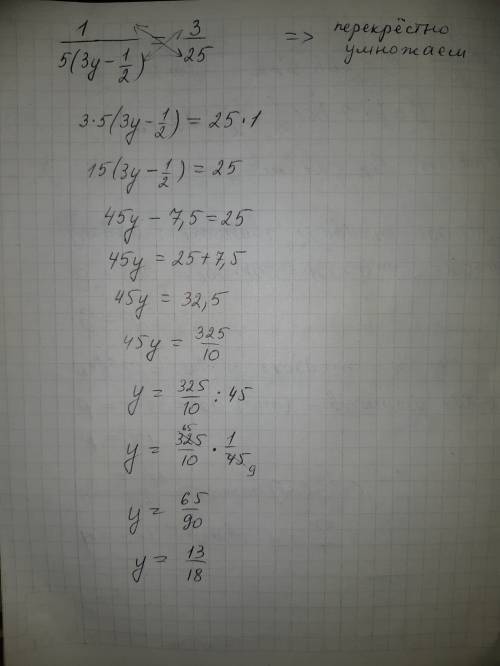 1/(5(3y - 1/2)) = 3/25 => перекрёстно умножаем
3·5(3y - 1/2) = 25·1
15(3y - 1/2) = 25
45y - 7,5 = 25
45y = 25 + 7,5
45y = 32,5
45y = 325/10
y = 325/10 : 45
y = 325/10 · 1/45 65 9
y = 65/90
y = 13/18